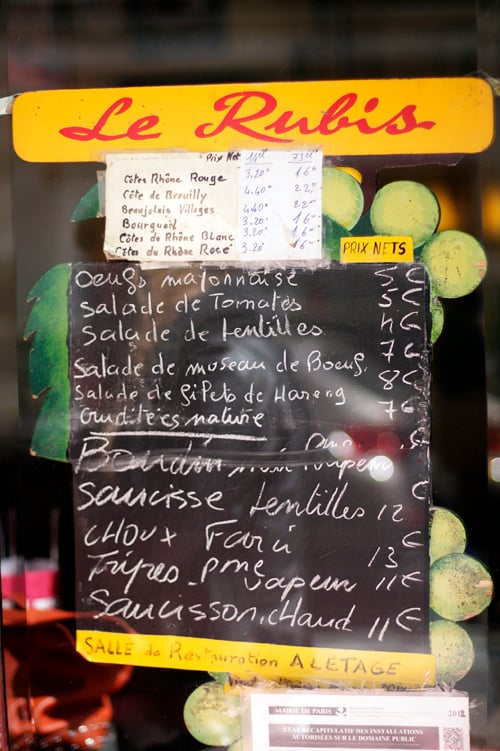 Le Rubis
Prix Net 14cl 73cl
Côtes Rhône Rouge 3.20 16-
Côte de Brouilly 4.40 22-
Beaujolais Villages 4.40 22-
Bourgueil 3.20 16-
Côtes de Rhône Blanc 3.20 16-
Côtes de Rhône Rocé 3.20 16-
PRIX NETS
oeufs mayonnaise 5€
salade de Tomates 5€
salade de lentilles 4€
salade de museau de Boeuf 7€
salade de filets de Hareng 8€
cruditées nature 7€
Boudin noir pme vapeur
saucisse lentilles 12€
CHOUX Farci 13€
Tripes pme vapeur 11€
saucisson chaud 11€
SALLE de Restauration A LETAGE
MAIRIE DE PARIS
ETAT RÉCAPITULATIF DES INSTALLATIONS
AUTORISÉES SUR LE DOMAINE PUBLIC